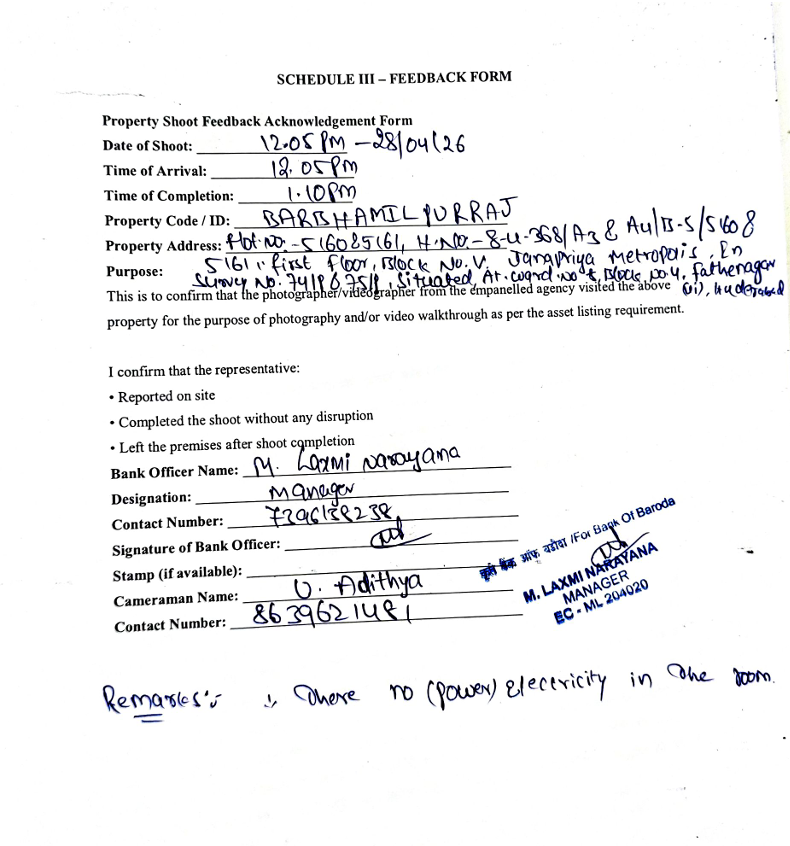 SCHEDULE III – FEEDBACK FORM
Property Shoot Feedback Acknowledgement Form
Date of Shoot: 12.05 PM – 28/04/26
Time of Arrival: 12.05 PM
Time of Completion: 1.10 PM
Property Code / ID: BARBHAMILPURRAJ
Property Address: Flot.No:-5160&5161, H.No:-8-4-368/A3 & A4/B-S/5160 &
5161. first floor, Block No. V. Janapriya Metropolis, In
Purpose: Survey No. 74/P & 75/P, Situated, At. ward no 8, Block no 4, fathenagar
This is to confirm that the photographer/videographer from the empanelled agency visited the above (vi), Hyderabad
property for the purpose of photography and/or video walkthrough as per the asset listing requirement.
I confirm that the representative:
• Reported on site
• Completed the shoot without any disruption
• Left the premises after shoot completion
Bank Officer Name: M. Laxmi Narayana
Designation: Manager
Contact Number: 7396138238
Signature of Bank Officer:
Stamp (if available):
बैंक ऑफ़ बड़ौदा /For Bank Of Baroda
M. LAXMI NARAYANA
MANAGER
EC - ML 204020
Cameraman Name: V. Adithya
Contact Number: 8639621481
Remarks:- There no (power) Electricity in the room.